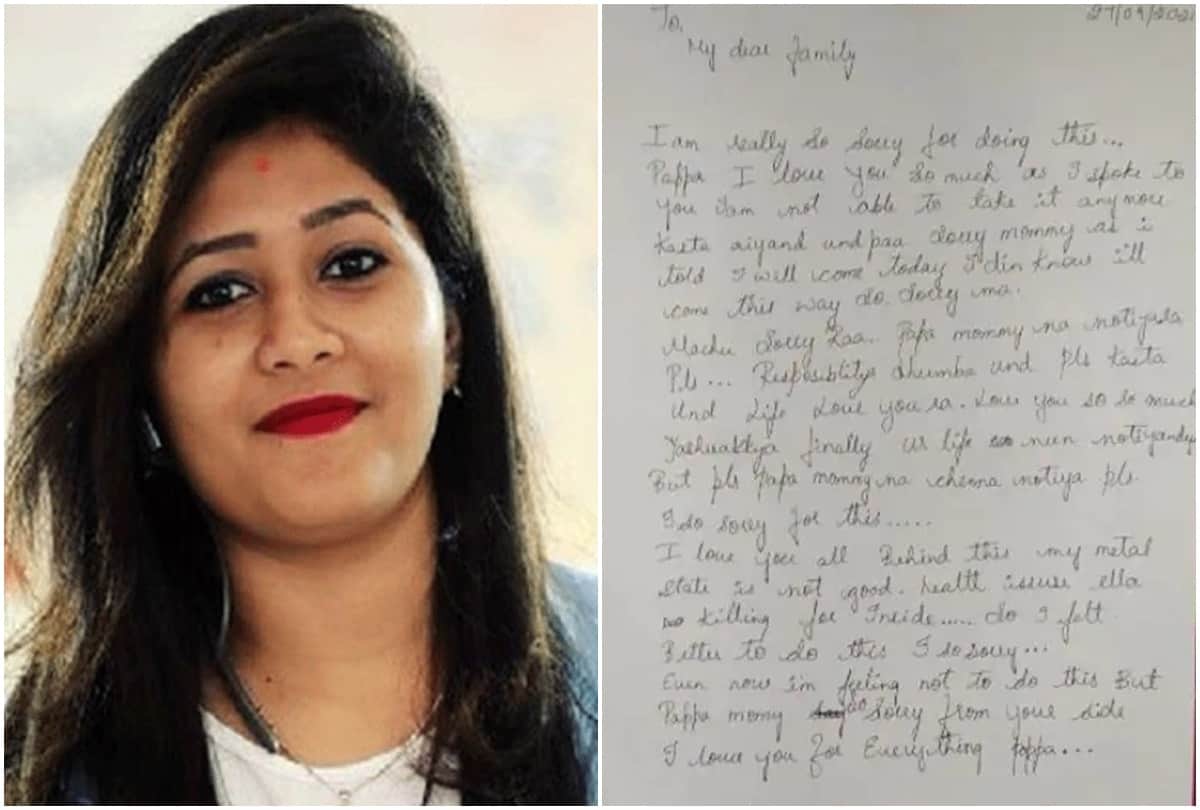 To,
27/09/202
My dear family
I am really so sorry for doing this...
Pappa I love you so much as I spoke to
you Iam not able to take it anymore
Kasta aiyand und paa sorry mommy as i
told I will come today I din know ill
come this way so sorry ma.
Machu sorry Raa. Papa mommy na notiyada
Pls... Resposiblitys dhumba und pls Kasta
Und Life Love you ra. Love you so so much
finally ur life neen notiyandy
But pls papa mommy na chenna notiya pls
I so sorry for this.....
I love you all Behind this my metal
state is not good. healtt issuse ella
killing for Inside..... so I felt
Better to do this I so sorry...
Even now i'm feeling not to do this But
Pappa momy sorry from your side
I love you for Everything Pappa...